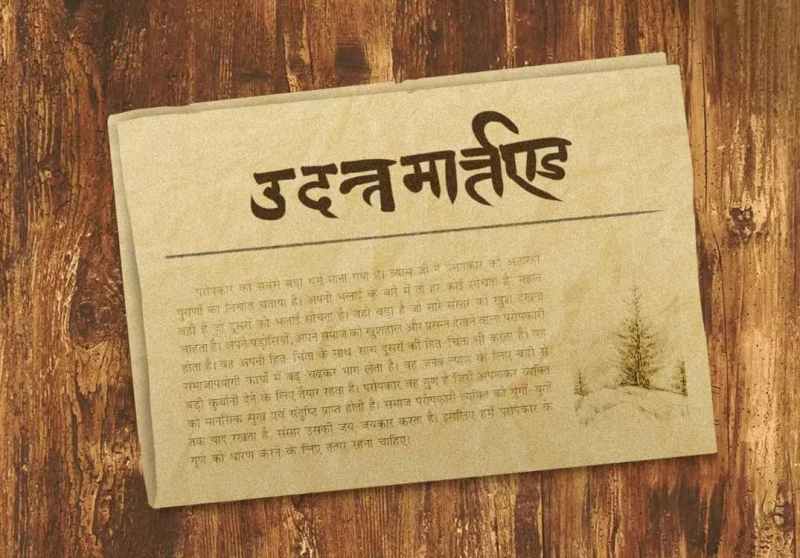 उदन्त मार्त्तण्ड
परोपकार को सबसे बड़ा धर्म माना गया है। व्यास जी ने परोपकार को अठारहों
पुराणों का निचोड़ बताया है। अपनी भलाई के बारे में तो हर कोई सोचता है, महान
वही है जो दूसरों की भलाई सोचता है। वही बड़ा है जो सारे संसार को खुश देखना
चाहता है। अपने पड़ोसियों, अपने समाज को खुशहाल और प्रसन्न देखने वाला परोपकारी
होता है। वह अपनी हित चिंता के साथ साथ दूसरों की हित चिंता भी करता है। वह
समाजोपयोगी कार्यों में बढ़ चढ़कर भाग लेता है। वह उनके कल्याण के लिए बड़ी से
बड़ी कुर्बानी देने के लिए तैयार रहता है। परोपकार वह गुण है जिसे अपनाकर व्यक्ति
को मानसिक सुख एवं संतुष्टि प्राप्त होती है। समाज परोपकारी व्यक्ति को युगों युगों
तक याद रखता है, संसार उसकी जय जयकार करता है। इसलिए हमें परोपकार के
गुण को धारण करने के लिए तत्पर रहना चाहिए।